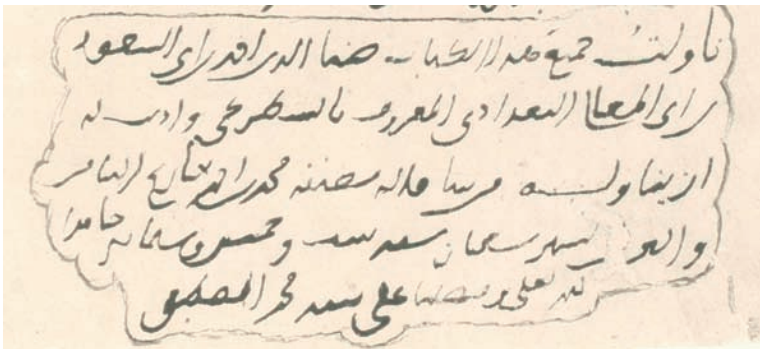 ناولت جميع هذا الكتاب ابى السعود
بن ابى المعالى البغدادى المعروف بالسطرنجى واذنت له
ان يناوله من شا قاله مصنفه محمد بن تاريخ الثامن
والعشرين لشهر شعبان سنه ست وخمسين وستمائه حامدا
لله تعلى ومصليا على سيده محمد المصطفى